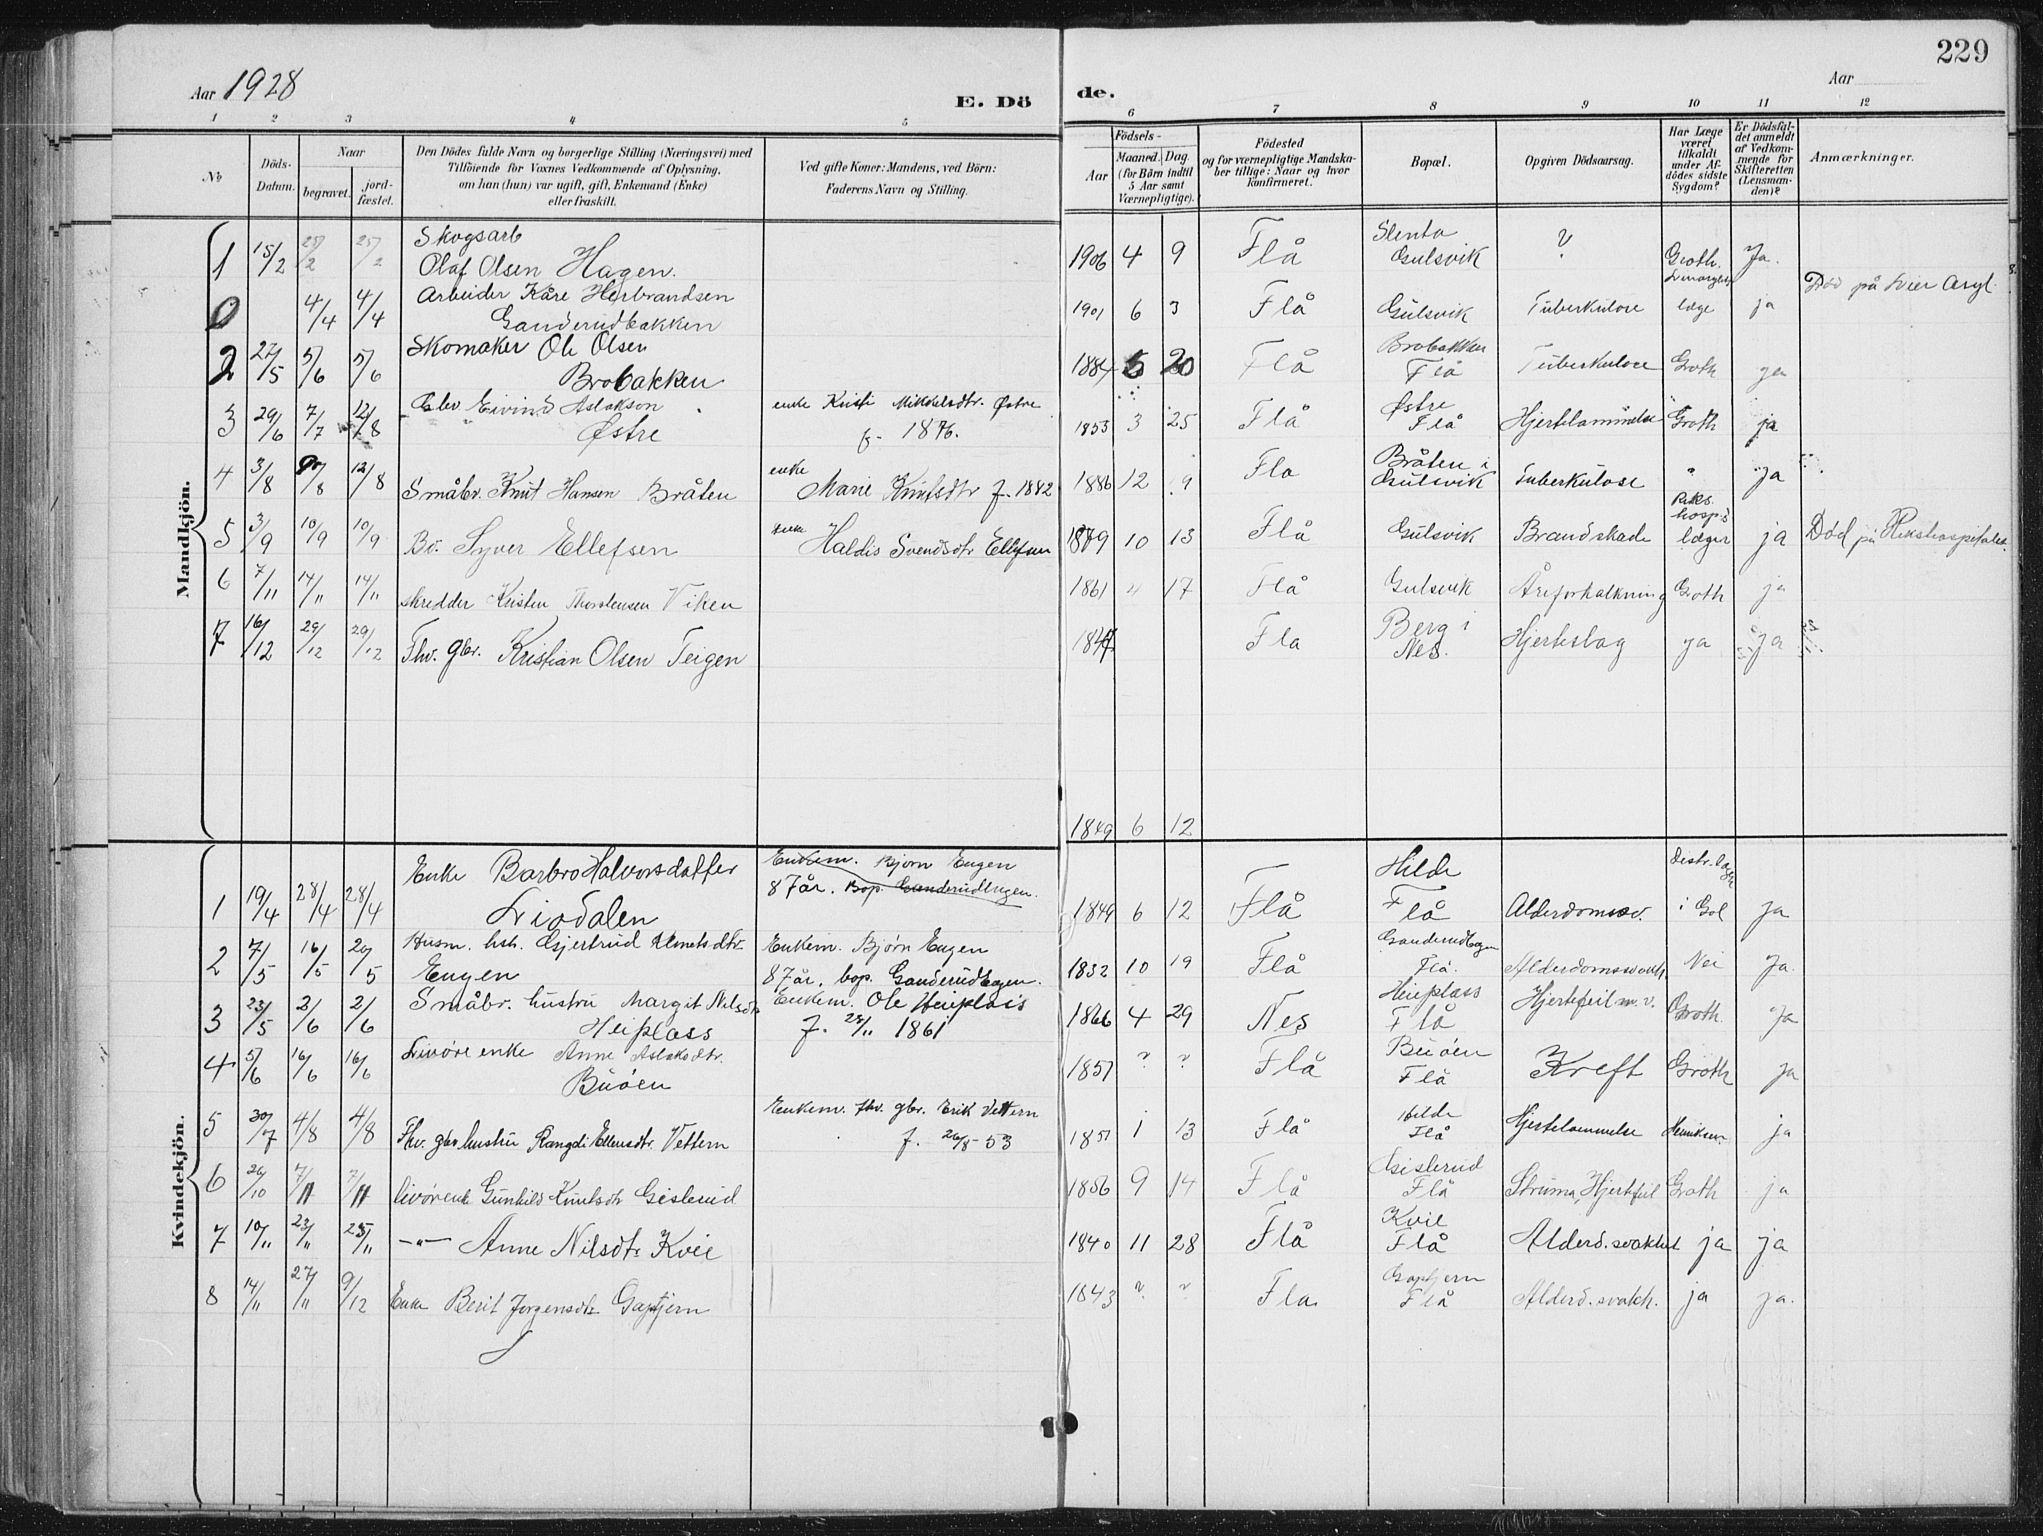 229
Aar 1928
E. Dö
de.
Aar
1 2 3 4 5
6 7 8 9 10 11 12
No
Döds-Datum.
Naar
begravet.
jord-fæstet.
Den Dödes fulde Navn og borgerlige Stilling (Næringsvei) med
Tilföiende for Voxnes Vedkommende af Oplysning,
om han (hun) var ugift, gift, Enkemand (Enke)
eller fraskilt.
Ved gifte Koner: Mandens, ved Börn:
Faderens Navn og Stilling.
Födsels-
Aar
Maaned. Dag
(for Börn indtil
5 Aar samt
Værnepligtige).
Födested
og for værnepligtige Mandska-
ber tillige: Naar og hvor
konfirmeret.
Bopæl.
Opgiven Dödsaarsag.
Har Læge
været
tilkaldt
under Af-
dödes sidste
Sygdom?
Er Dödsfal-
det anmeldt
af Vedkom-
mende for
Skifteretten
(Lensman-
den)?
Anmærkninger.
Mandkjön.
1 15/2 25/2 25/2 Skogsarb
Olaf Olsen Hagen.
1906 4 9 Flå Slenta
Gulsvik ? Groth. Ja.
0 4/4 4/4 Arbeider Kåre Herbrandsen
Ganderudbakken
1901 6 3 Flå Gulsvik Tuberkulose læge ja Död på Lier Asyl.
2 27/5 5/6 5/6 Skomaker Ole Olsen
Brobakken
1884 5 20 Flå Brobakken
Flå Tuberkulose Groth ja
3 29/6 7/7 12/8 Eivind Aslakson
Østre
enke Kristi Mikkelsdtr. Østre
f. 1876.
1853 3 25 Flå Østre
Flå Hjertelammelse Groth ja
4 3/8 12/8 Småbr. Knut Hansen Bråten
enke
Marie Knutsdtr f. 1882
1886 12 9 Fla Bråten i
Gulsvik Tuberkulose " ja
5 3/9 10/9 10/9 Bo. Syver Ellefsen
enke
Haldis Svendsdtr Ellefsen
1879 10 13 Flå Gulsvik Brandskade Riks.
hosp.s
læger ja Död på Rikshospitalet.
6 7/11 14/11 14/11 skredder Kristen Thorstensen Viken
1861 " 17 Flå Gulsvik Åreforkalkning Groth ja
7 16/12 29/12 29/12 Fhv. gbr. Kristian Olsen Teigen
1847 Fla Berg i
Nes. Hjerteslag ja ja
1849 6 12
Kvindekjön.
1 19/4 28/4 28/4 Enke Barbro Halvorsdatter
Liodalen
Enkem. Bjørn Eugen
87 år. Bop. Ganderudhagen.
1849 6 12 Flå Hilde
Flå Alderdomssv. distr. læge
i Gol ja
2 7/5 16/5 20/5 Husm. hst. Gjertrud Utnetsdtr.
Eugen
Enkem. Bjørn Eugen
87 år, bop. Ganderudhagen.
1832 10 19 Flå Ganderudhagen
Flå. Alderdomssvakh. Nei Ja.
3 23/5 2/6 2/6 Småbr. hustru Margit Nilsdtr
Heiplass
Enkem. Ole Heieplass
f. 28/11 1861
1866 4 29 Nes Heieplass
Flå Hjertefeil m.v. Groth. Ja
4 5/6 16/6 16/6 Livøre enke Anne Aslaksdtr.
Buöen
1857 ? ? Flå Buöen
Flå Kreft Groth ja
5 30/7 4/8 4/8 Fhv. gbr hustru Rangdi Ellensdtr. Vettern
Enkem. fhv. gbr. Erik Vettern
f. 26/8-53
1851 1 13 Flå Hilde
Flå Hjertelammelse Henriksen. ja
6 26/10 7/11 7/11 livørenk Gunhild Knutsdtr Gislerud
1856 9 14 Flå Gislerud
Flå Struma, Hjertfeil Groth ja
7 10/11 23/11 25/11 —"— Anne Nilsdtr Kvie
1840 11 28 Flå Kvie
Flå Alderd. svakhet ja ja
8 14/11 27/11 9/12 Enke Berit Jorgensdtr Gaptjern
1843 ? ? Fla Gaptjern
Flå Alderd. svakh. ja ja.